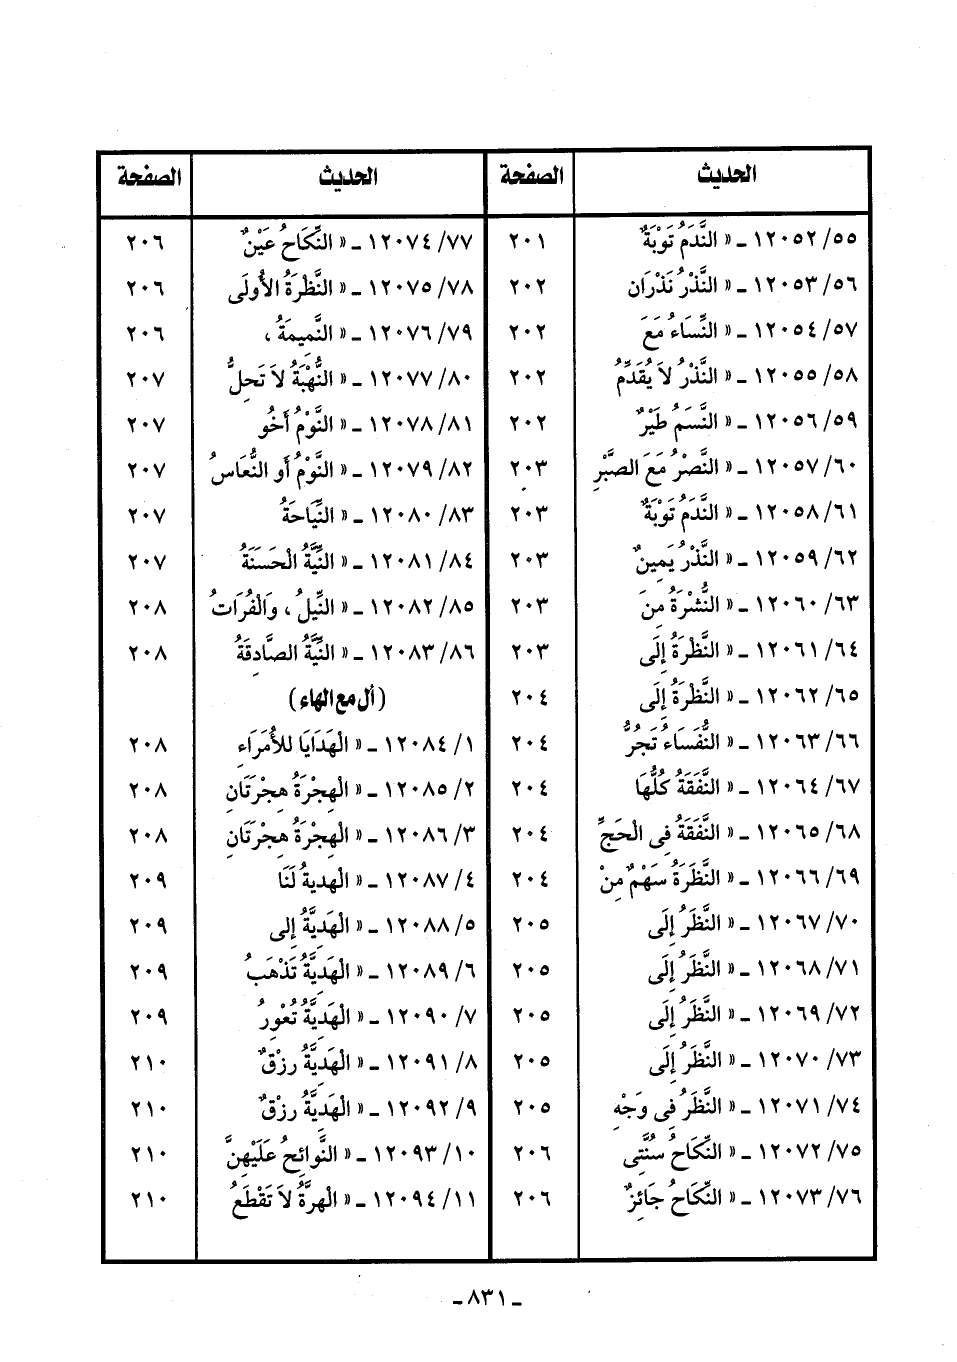 الحديث الصفحة الحديث الصفحة
١٢٠٥٢/٥٥ ـ « النَّدَمُ تَوْبَةٌ ٢٠١
١٢٠٥٣/٥٦ ـ « النَّذْرُ نَذْرَان ٢٠٢
١٢٠٥٤/٥٧ ـ « النِّسَاءُ مَعَ ٢٠٢
١٢٠٥٥/٥٨ ـ « النَّذْرُ لاَ يُقَدِّمُ ٢٠٢
١٢٠٥٦/٥٩ ـ « النَّسَمُ طَيْرٌ ٢٠٢
١٢٠٥٧/٦٠ ـ « النَّصْرُ مَعَ الصَّبْرِ ٢٠٣
١٢٠٥٨/٦١ ـ « النَّدَمُ تَوْبَةٌ ٢٠٣
١٢٠٥٩/٦٢ ـ « النَّذْرُ يَمِينٌ ٢٠٣
١٢٠٦٠/٦٣ ـ « النُّشْرَةُ مِنَ ٢٠٣
١٢٠٦١/٦٤ ـ « النَّظْرَةُ إِلَى ٢٠٣
١٢٠٦٢/٦٥ ـ « النَّظْرَةُ إِلَى ٢٠٤
١٢٠٦٣/٦٦ ـ « النُّفَسَاءُ تَجُرُّ ٢٠٤
١٢٠٦٤/٦٧ ـ « النَّفَقَةُ كُلُّهَا ٢٠٤
١٢٠٦٥/٦٨ ـ « النَّفَقَةُ فِى الْحَجِّ ٢٠٤
١٢٠٦٦/٦٩ ـ « النَّظَرَةُ سَهْمٌ مِنْ ٢٠٤
١٢٠٦٧/٧٠ ـ « النَّظَرُ إِلَى ٢٠٥
١٢٠٦٨/٧١ ـ « النَّظَرُ إِلَى ٢٠٥
١٢٠٦٩/٧٢ ـ « النَّظَرُ إِلَى ٢٠٥
١٢٠٧٠/٧٣ ـ « النَّظَرُ إِلَى ٢٠٥
١٢٠٧١/٧٤ ـ « النَّظَرُ فِى وَجْهِ ٢٠٥
١٢٠٧٢/٧٥ ـ « النِّكَاحُ سُنَّتِى ٢٠٦
١٢٠٧٣/٧٦ ـ « النِّكَاحُ جَائِزٌ ٢٠٦
١٢٠٧٤/٧٧ ـ « النِّكَاحُ عَيْنٌ ٢٠٦
١٢٠٧٥/٧٨ ـ « النَّظْرَةُ الأُولَى ٢٠٦
١٢٠٧٦/٧٩ ـ « النَّمِيمَةُ ، ٢٠٦
١٢٠٧٧/٨٠ ـ « النُّهْبَةُ لاَ تَحِلُّ ٢٠٧
١٢٠٧٨/٨١ ـ « النَّوْمُ أَخُو ٢٠٧
١٢٠٧٩/٨٢ ـ « النَّوْمُ أَو النُّعَاسُ ٢٠٧
١٢٠٨٠/٨٣ ـ « النِّيَاحَةُ ٢٠٧
١٢٠٨١/٨٤ ـ « النِّيَّةُ الْحَسَنَةُ ٢٠٧
١٢٠٨٢/٨٥ ـ « النِّيلُ ، وَالْفُرَاتُ ٢٠٨
١٢٠٨٣/٨٦ ـ « النِّيَّةُ الصَّادِقَةُ ٢٠٨
( أل مع الهاء )
١٢٠٨٤/١ ـ « الْهَدَايَا للأُمَرَاءِ ٢٠٨
١٢٠٨٥/٢ ـ « الْهِجْرَةُ هِجْرَتَانِ ٢٠٨
١٢٠٨٦/٣ ـ « الْهِجْرَةُ هِجْرَتَانِ ٢٠٨
١٢٠٨٧/٤ ـ « الْهديةُ لَنَا ٢٠٩
١٢٠٨٨/٥ ـ « الْهَدِيَّةُ إِلى ٢٠٩
١٢٠٨٩/٦ ـ « الْهَدِيَّةُ تَذْهَبُ ٢٠٩
١٢٠٩٠/٧ ـ « الْهَدِيَّةُ تُعْوِرُ ٢٠٩
١٢٠٩١/٨ ـ « الْهَدِيَّةُ رِزْقٌ ٢١٠
١٢٠٩٢/٩ ـ « الْهَدِيَّةُ رِزْقٌ ٢١٠
١٢٠٩٣/١٠ ـ « النَّوائِحُ عَلَيْهِنَّ ٢١٠
١٢٠٩٤/١١ ـ « الْهِرَّةُ لاَ تَقْطَعُ ٢١٠
ـ ٨٣١ ـ